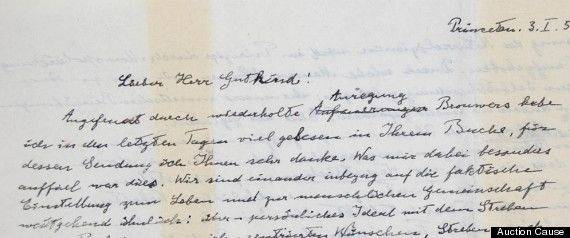 Princeton. 3. I. 5
Lieber Herr Gutkind!
Anregung
Angefeuert durch wiederholte Brouwers habe
ich in den letzten Tagen viel gelesen in Ihrem Buche, für
dessen Sendung ich Ihnen sehr danke. Was mir dabei besonders
auffiel war dies. Wir sind einander inbezug auf die faktische
Einstellung zum Leben und zur menschlichen Gemeinschaft
weitgehend ähnlich: über-persönliches Ideal mit dem Streben
Wünschen, Streben
Auction Cause